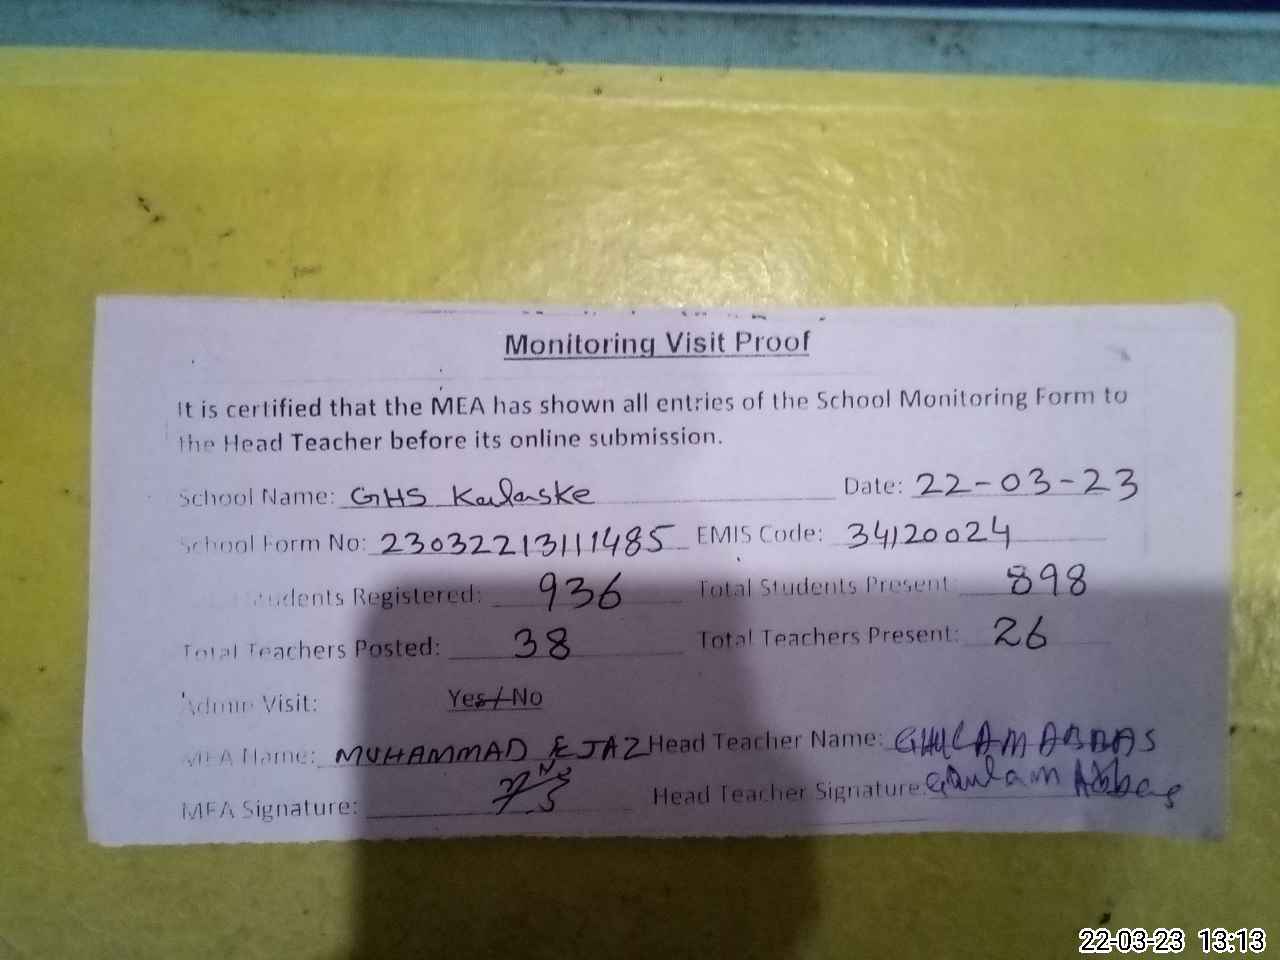 Monitoring Visit Proof
It is certified that the MEA has shown all entries of the School Monitoring Form to
the Head Teacher before its online submission.
School Name: GHS Kalaske Date: 22-03-23
School Form No: 230322213111485 EMIS Code: 34120024
Students Registered: 936 Total Students Present: 898
Total Teachers Posted: 38 Total Teachers Present: 26
Admin Visit: Yes/No
MEA Name: MUHAMMAD EJAZ Head Teacher Name: GHULAM ABBAS
MEA Signature: Head Teacher Signature: Ghulam Abbas
22-03-23 13:13